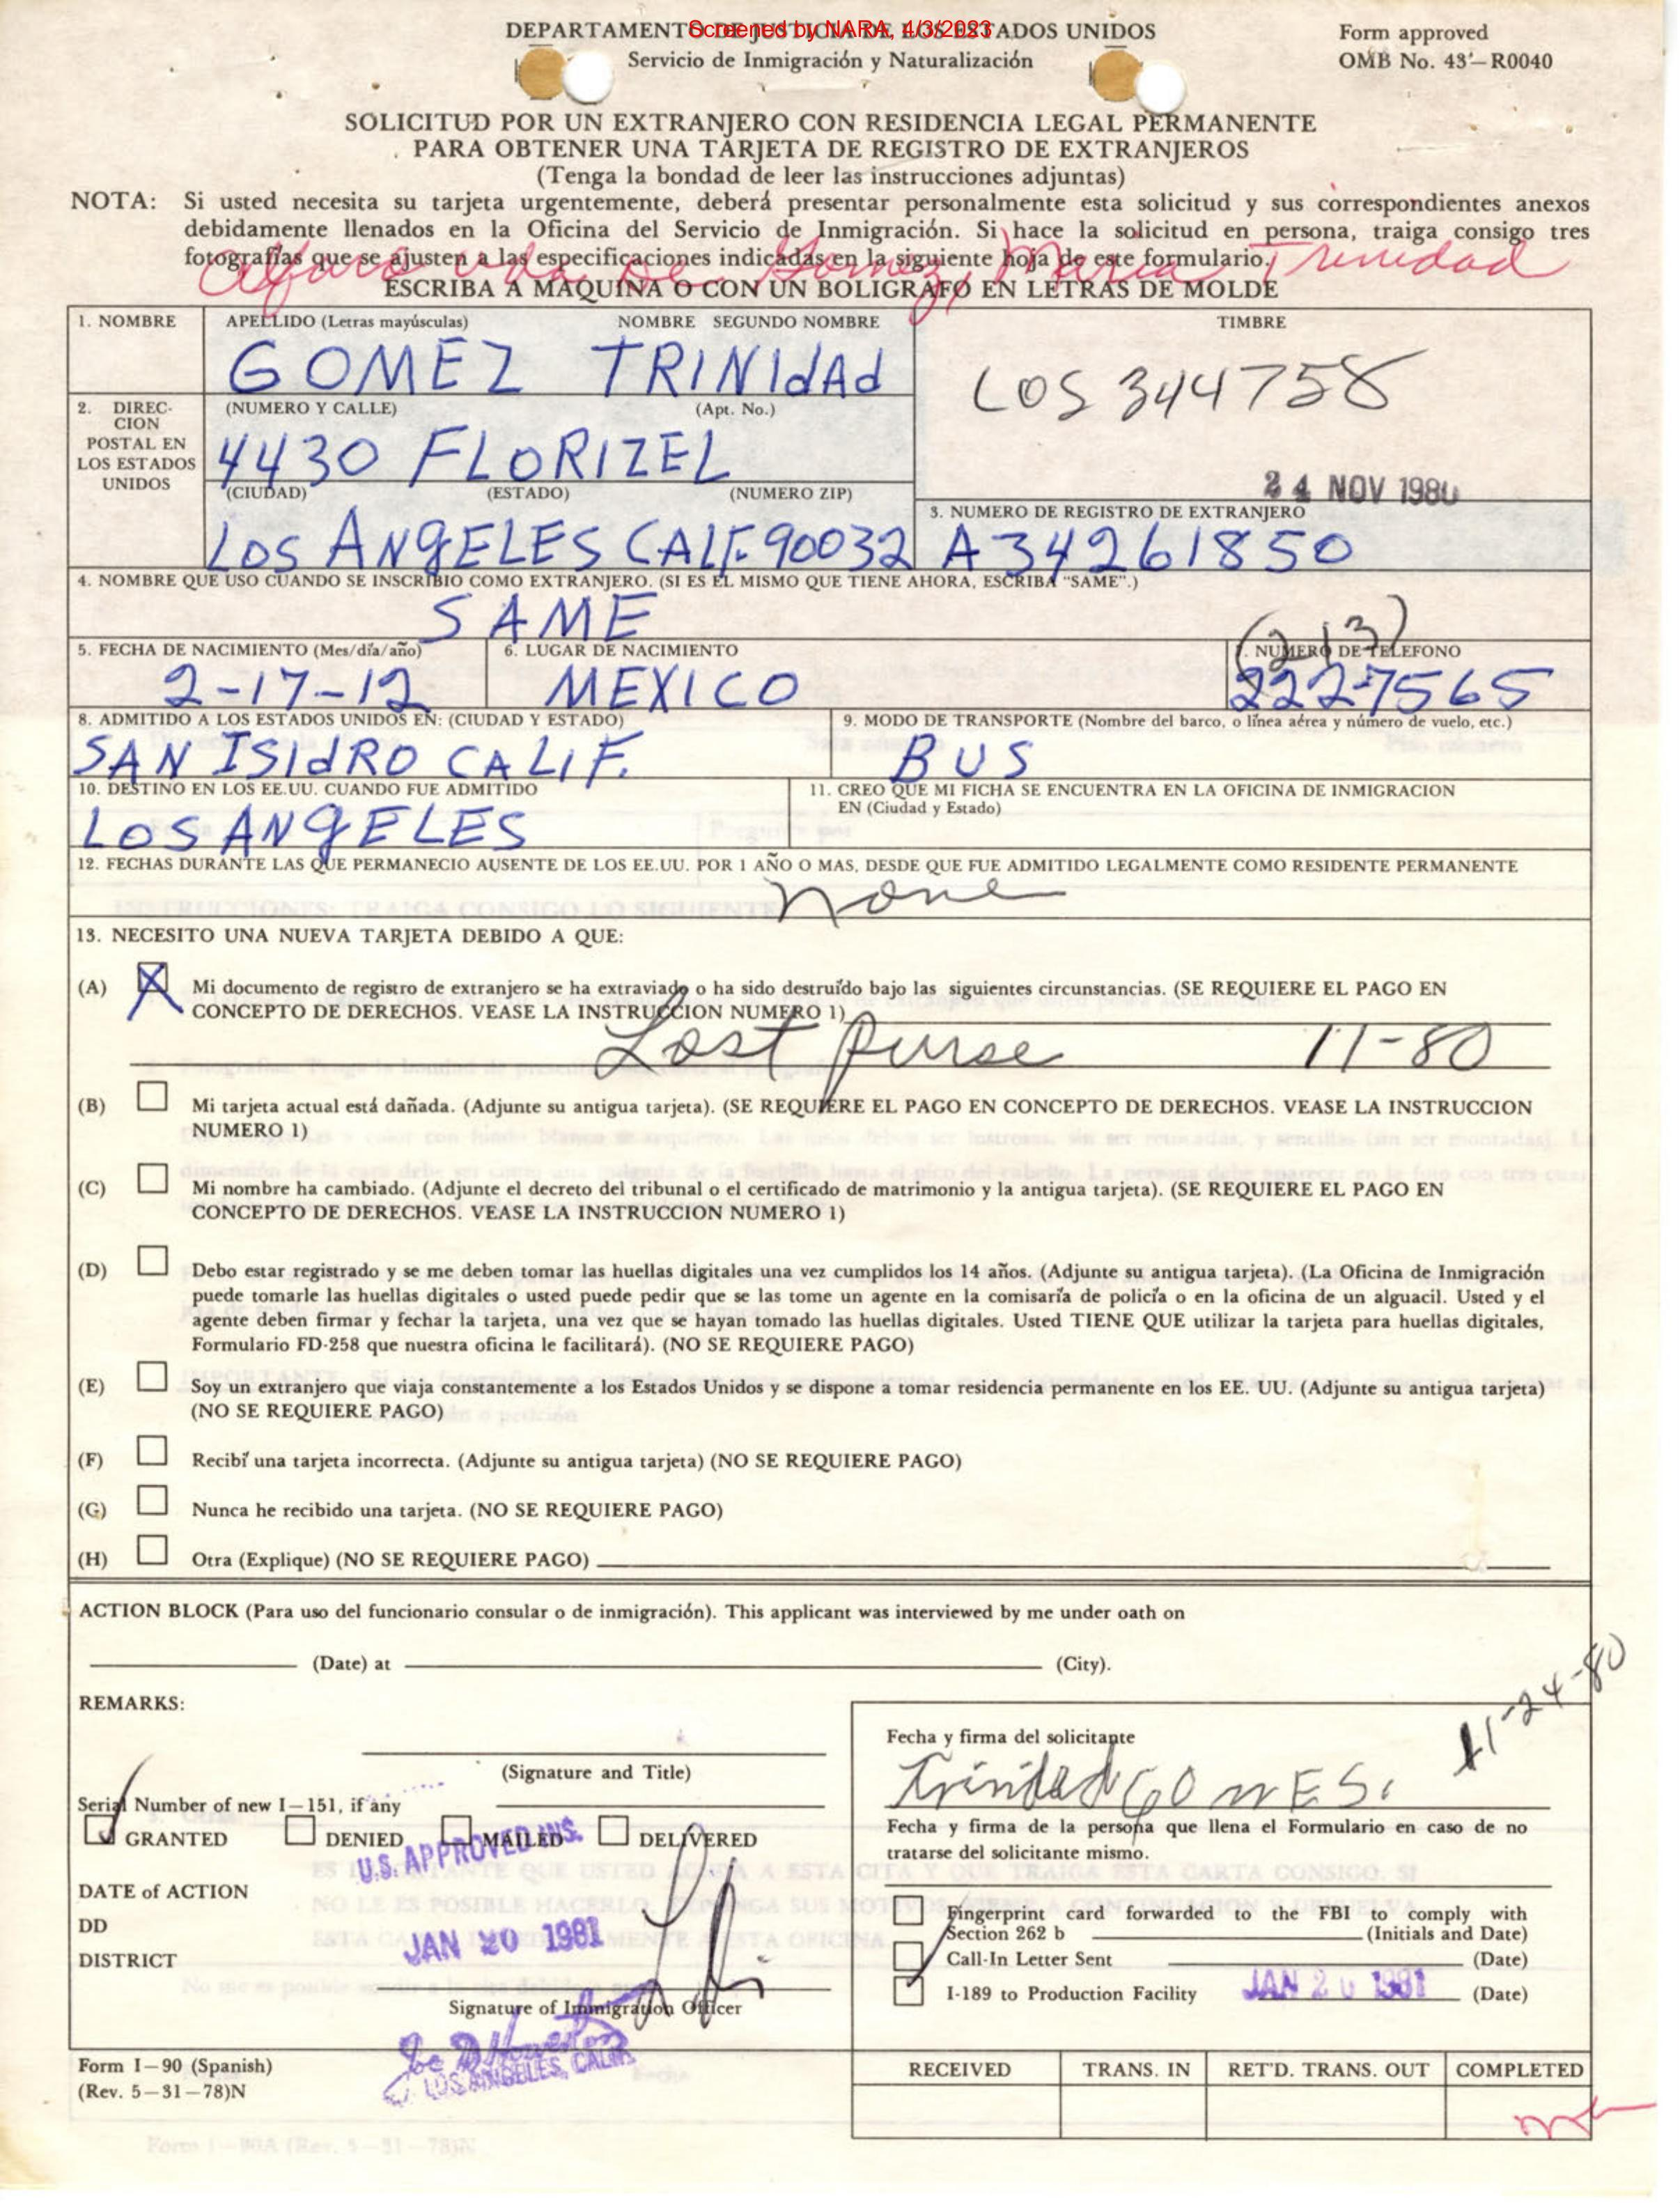 Screened by NARA, 4/3/2023
DEPARTAMENTO DE JUSTICIA DE LOS ESTADOS UNIDOS
Servicio de Inmigración y Naturalización
Form approved
OMB No. 43–R0040
SOLICITUD POR UN EXTRANJERO CON RESIDENCIA LEGAL PERMANENTE
PARA OBTENER UNA TARJETA DE REGISTRO DE EXTRANJEROS
(Tenga la bondad de leer las instrucciones adjuntas)
NOTA: Si usted necesita su tarjeta urgentemente, deberá presentar personalmente esta solicitud y sus correspondientes anexos
debidamente llenados en la Oficina del Servicio de Inmigración. Si hace la solicitud en persona, traiga consigo tres
fotografías que se ajusten a las especificaciones indicadas en la siguiente hoja de este formulario.
Alfaro vda De Gomez, Maria Trinidad
ESCRIBA A MAQUINA O CON UN BOLIGRAFO EN LETRAS DE MOLDE
1. NOMBRE APELLIDO (Letras mayúsculas) NOMBRE SEGUNDO NOMBRE
GOMEZ TRINIdAd
TIMBRE
LOS 344758
24 NOV 1980
2. DIREC-
CION
POSTAL EN
LOS ESTADOS
UNIDOS
(NUMERO Y CALLE) (Apt. No.)
4430 FLORIZEL
(CIUDAD) (ESTADO) (NUMERO ZIP)
LOS ANgELES CALIF. 90032
3. NUMERO DE REGISTRO DE EXTRANJERO
A34261850
4. NOMBRE QUE USO CUANDO SE INSCRIBIO COMO EXTRANJERO. (SI ES EL MISMO QUE TIENE AHORA, ESCRIBA “SAME”.)
SAME
5. FECHA DE NACIMIENTO (Mes/día/año)
2-17-12
6. LUGAR DE NACIMIENTO
MEXICO
7. NUMERO DE TELEFONO
(213)
222-7565
8. ADMITIDO A LOS ESTADOS UNIDOS EN: (CIUDAD Y ESTADO)
SAN ISIdRO CALIF.
9. MODO DE TRANSPORTE (Nombre del barco, o línea aérea y número de vuelo, etc.)
BUS
10. DESTINO EN LOS EE.UU. CUANDO FUE ADMITIDO
LOS ANgELES
11. CREO QUE MI FICHA SE ENCUENTRA EN LA OFICINA DE INMIGRACION
EN (Ciudad y Estado)
12. FECHAS DURANTE LAS QUE PERMANECIO AUSENTE DE LOS EE.UU. POR 1 AÑO O MAS, DESDE QUE FUE ADMITIDO LEGALMENTE COMO RESIDENTE PERMANENTE
none
13. NECESITO UNA NUEVA TARJETA DEBIDO A QUE:
(A) X Mi documento de registro de extranjero se ha extraviado o ha sido destruído bajo las siguientes circunstancias. (SE REQUIERE EL PAGO EN
CONCEPTO DE DERECHOS. VEASE LA INSTRUCCION NUMERO 1)
Lost purse 11-80
(B) Mi tarjeta actual está dañada. (Adjunte su antigua tarjeta). (SE REQUIERE EL PAGO EN CONCEPTO DE DERECHOS. VEASE LA INSTRUCCION
NUMERO 1)
(C) Mi nombre ha cambiado. (Adjunte el decreto del tribunal o el certificado de matrimonio y la antigua tarjeta). (SE REQUIERE EL PAGO EN
CONCEPTO DE DERECHOS. VEASE LA INSTRUCCION NUMERO 1)
(D) Debo estar registrado y se me deben tomar las huellas digitales una vez cumplidos los 14 años. (Adjunte su antigua tarjeta). (La Oficina de Inmigración
puede tomarle las huellas digitales o usted puede pedir que se las tome un agente en la comisaría de policía o en la oficina de un alguacil. Usted y el
agente deben firmar y fechar la tarjeta, una vez que se hayan tomado las huellas digitales. Usted TIENE QUE utilizar la tarjeta para huellas digitales,
Formulario FD-258 que nuestra oficina le facilitará). (NO SE REQUIERE PAGO)
(E) Soy un extranjero que viaja constantemente a los Estados Unidos y se dispone a tomar residencia permanente en los EE. UU. (Adjunte su antigua tarjeta)
(NO SE REQUIERE PAGO)
(F) Recibí una tarjeta incorrecta. (Adjunte su antigua tarjeta) (NO SE REQUIERE PAGO)
(G) Nunca he recibido una tarjeta. (NO SE REQUIERE PAGO)
(H) Otra (Explique) (NO SE REQUIERE PAGO)
ACTION BLOCK (Para uso del funcionario consular o de inmigración). This applicant was interviewed by me under oath on
(Date) at (City).
REMARKS:
(Signature and Title)
Serial Number of new I–151, if any
GRANTED DENIED MAILED DELIVERED
U.S. APPROVED INS.
DATE of ACTION
DD
JAN 20 1981
DISTRICT
Signature of Immigration Officer
LOS ANGELES, CALIF.
11-24-80
Fecha y firma del solicitante
Trinidad GOmES.
Fecha y firma de la persona que llena el Formulario en caso de no
tratarse del solicitante mismo.
Fingerprint card forwarded to the FBI to comply with
Section 262 b (Initials and Date)
Call-In Letter Sent (Date)
I-189 to Production Facility JAN 20 1981 (Date)
Form I–90 (Spanish)
(Rev. 5–31–78)N
RECEIVED TRANS. IN RET'D. TRANS. OUT COMPLETED